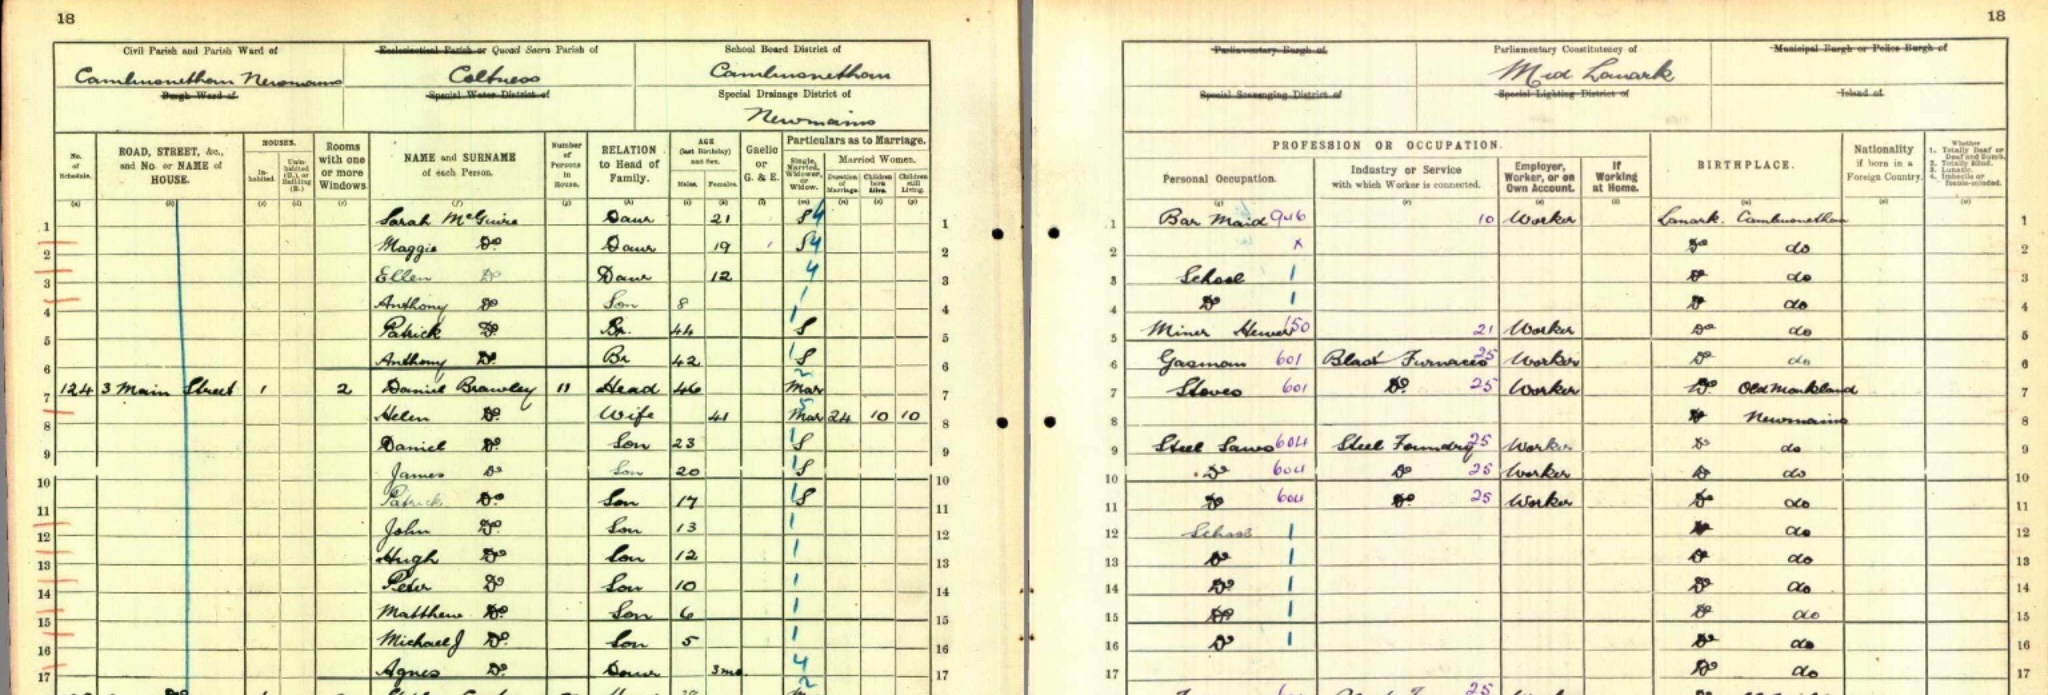 18
18
Civil Parish and Parish Ward of
Ecclesiastical Parish or Quoad Sacra Parish of
School Board District of
Cambusnethan Newmains
Coltness
Cambusnethan
Burgh Ward of
Special Water District of
Special Drainage District of
Newmains
Parliamentary Burgh of
Parliamentary Constituency of
Municipal Burgh or Police Burgh of
Mid Lanark
Special Scavenging District of
Special Lighting District of
Island of
No. of Schedule.
ROAD, STREET, &c., and No. or NAME of HOUSE.
HOUSES.
In-habited.
Unin-habited (U.), or Building (B.)
Rooms with one or more Windows.
NAME and SURNAME of each Person.
Number of Persons in House.
RELATION to Head of Family.
AGE (last Birthday) and Sex.
Males.
Females.
Gaelic or G. & E.
Particulars as to Marriage.
Single, Married, Widower, or Widow.
Married Women.
Duration of Marriage.
Children born Alive.
Children still Living.
PROFESSION OR OCCUPATION.
Personal Occupation.
Industry or Service with which Worker is connected.
Employer, Worker, or on Own Account.
If Working at Home.
BIRTHPLACE.
Nationality if born in a Foreign Country.
Whether 1. Totally Deaf or Deaf and Dumb. 2. Totally Blind. 3. Lunatic. 4. Imbecile or feeble-minded.
1 Sarah McGuire Daur 21 S 4 1
2 Maggie Do Daur 19 S 4 2
3 Ellen Do Daur 12 4 3
4 Anthony Do Son 8 1 4
5 Patrick Do Br. 44 S 5
6 Anthony Do Br 42 1 S 6
7 124 3 Main Street 1 2 Daniel Brawley 11 Head 46 2 Mar 7
8 Helen Do Wife 41 5 Mar 24 10 10 8
9 Daniel Do Son 23 1 S 9
10 James Do Son 20 1 S 10
11 Patrick Do Son 17 1 S 11
12 John Do Son 13 1 12
13 Hugh Do Son 12 1 13
14 Peter Do Son 10 1 14
15 Matthew Do Son 6 1 15
16 Michael J Do Son 5 1 16
17 Agnes Do Daur 3 mo. 4 17
1 Bar Maid 946 10 Worker Lanark. Cambusnethan 1
2 x Do do 2
3 School 1 Do do 3
4 Do 1 Do do 4
5 Miner Hewer 150 21 Worker Do do 5
6 Gasman 601 Blast Furnaces 25 Worker Do do 6
7 Stoves 601 Do 25 Worker Do Old Monkland 7
8 Do Newmains 8
9 Steel Saws 604 Steel Foundry 25 Worker Do do 9
10 Do 604 Do 25 Worker Do do 10
11 Do 604 Do 25 Worker Do do 11
12 School 1 Do do 12
13 Do 1 Do do 13
14 Do 1 Do do 14
15 Do 1 Do do 15
16 Do 1 Do do 16
17 Do do 17